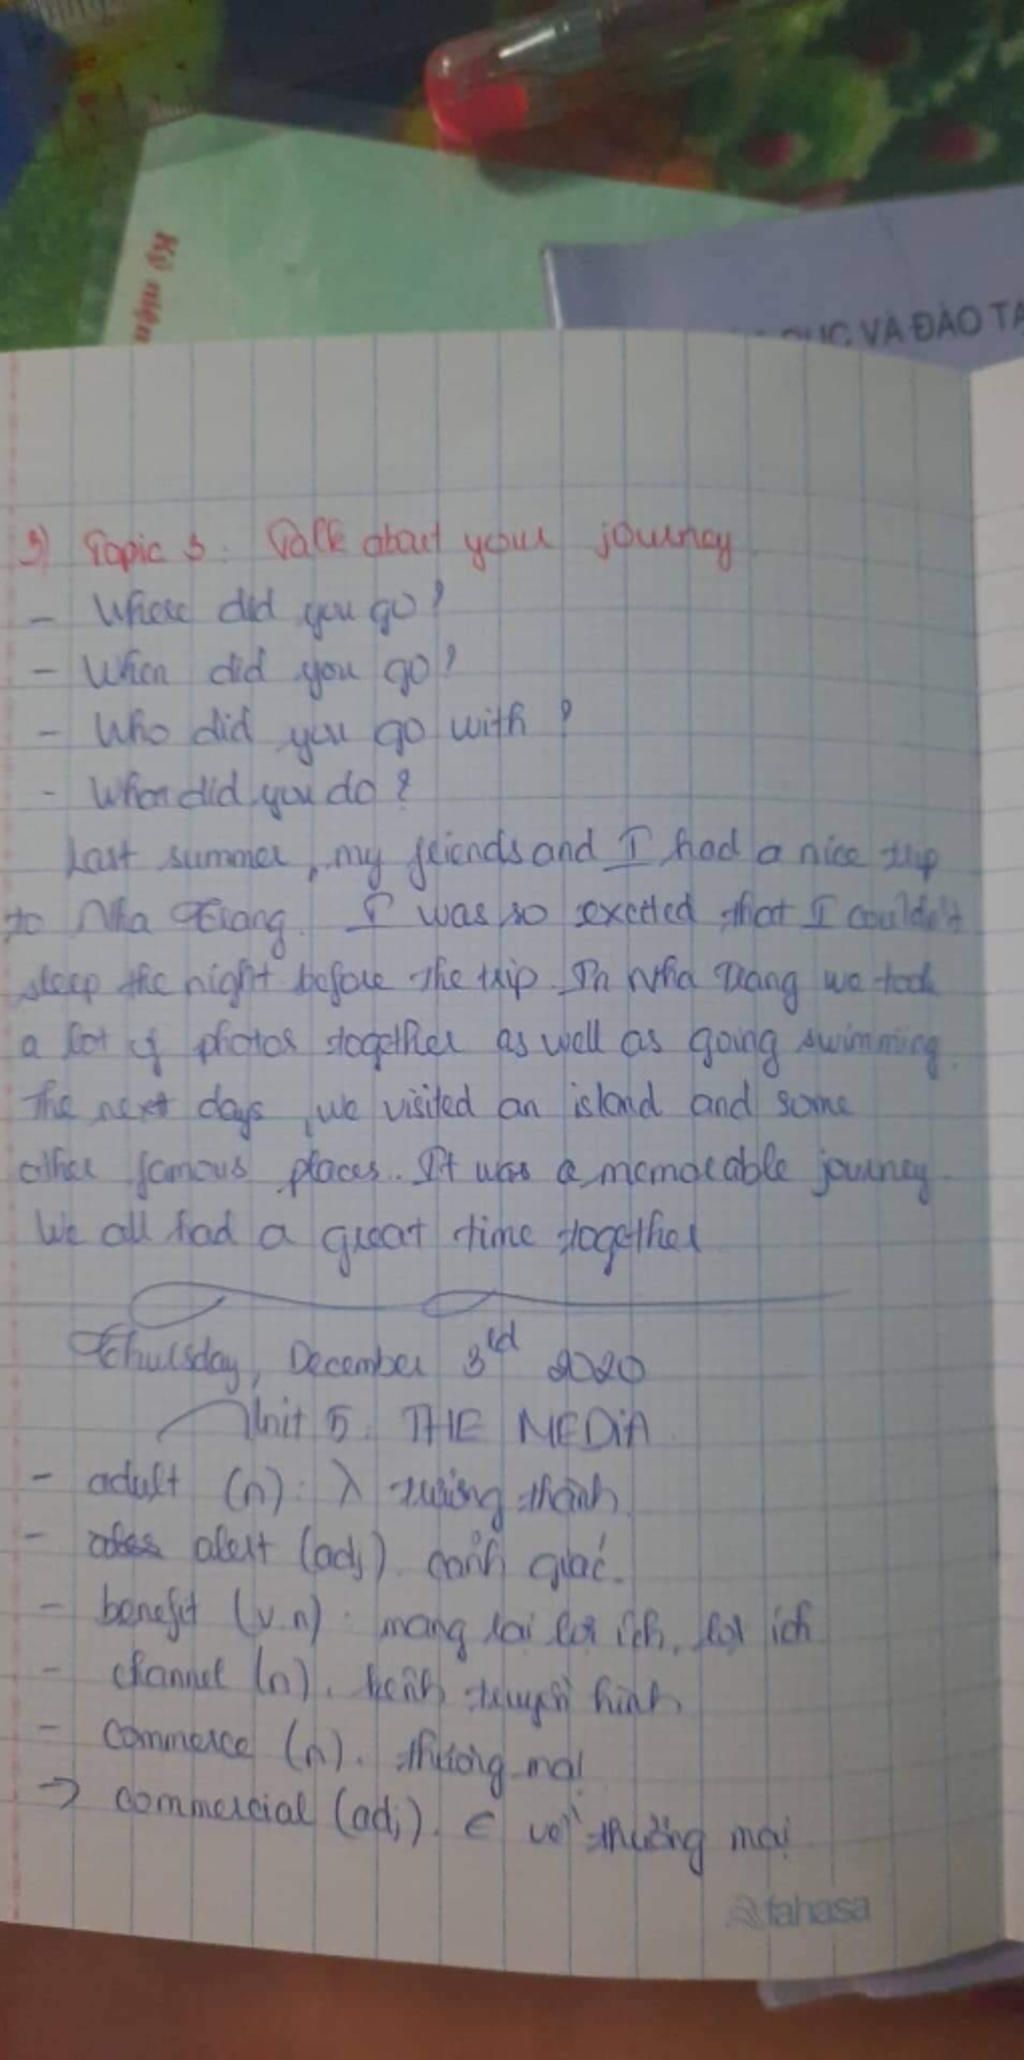 Kỷ niệm
DỤC VÀ ĐÀO TẠ
3) Topic 3. Talk about your journey
- Where did you go?
- When did you go?
- Who did you go with?
- What did you do?
Last summer, my friends and I had a nice trip
to Nha Trang. I was so excited that I couldn't
sleep the night before the trip. In Nha Trang we took
a lot of photos together as well as going swimming.
The next days, we visited an island and some
other famous places. It was a memorable journey.
We all had a great time together
Thursday, December 3rd 2020
Unit 5. THE MEDiA
- adult (n): trưởng thành
- alert (adj). cảnh giác.
- benefit (v.n): mang lại lợi ích, lợi ích
- channel (n). kênh truyền hình
- commerce (n). thương mại
→ commercial (adj). ∈ về thương mại
fahasa